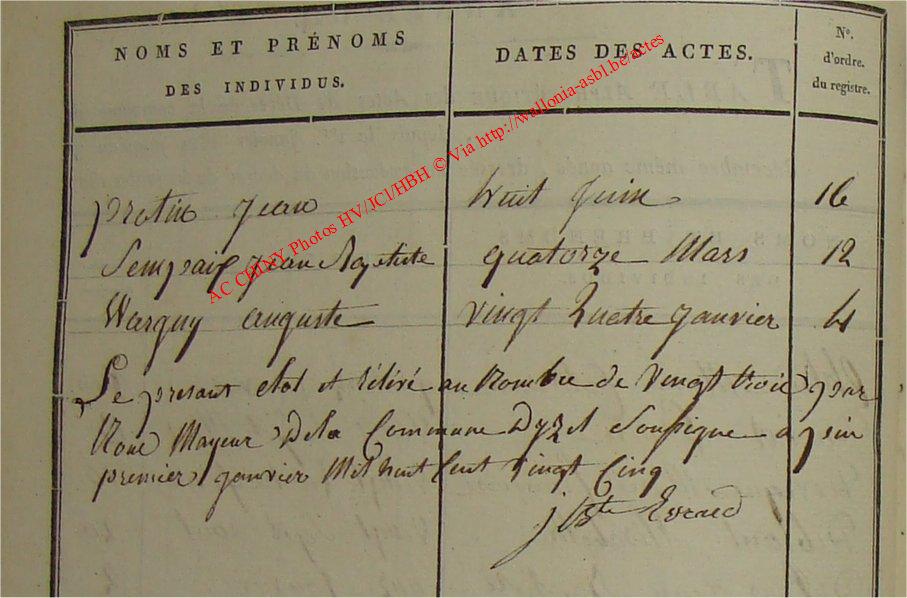 NOMS ET PRÉNOMS DES INDIVIDUS.
DATES DES ACTES.
N°. d'ordre. du registre.
protin Jean huit Juin 16
Sempaix Jean Baptiste quatorze Mars 12
Warguy auguste vingt quatre janvier 4
Le present etat et rélivé au Nombre de vingt trois par
Nous Mayeur De la Commune Dyzel Soussigné a
premier janvier Mil huit Cent vingt Cinq
j Bte Evrard
AC CHINY Photos HV/JCl/HBH © Via http://wallonia-asbl.be/actes